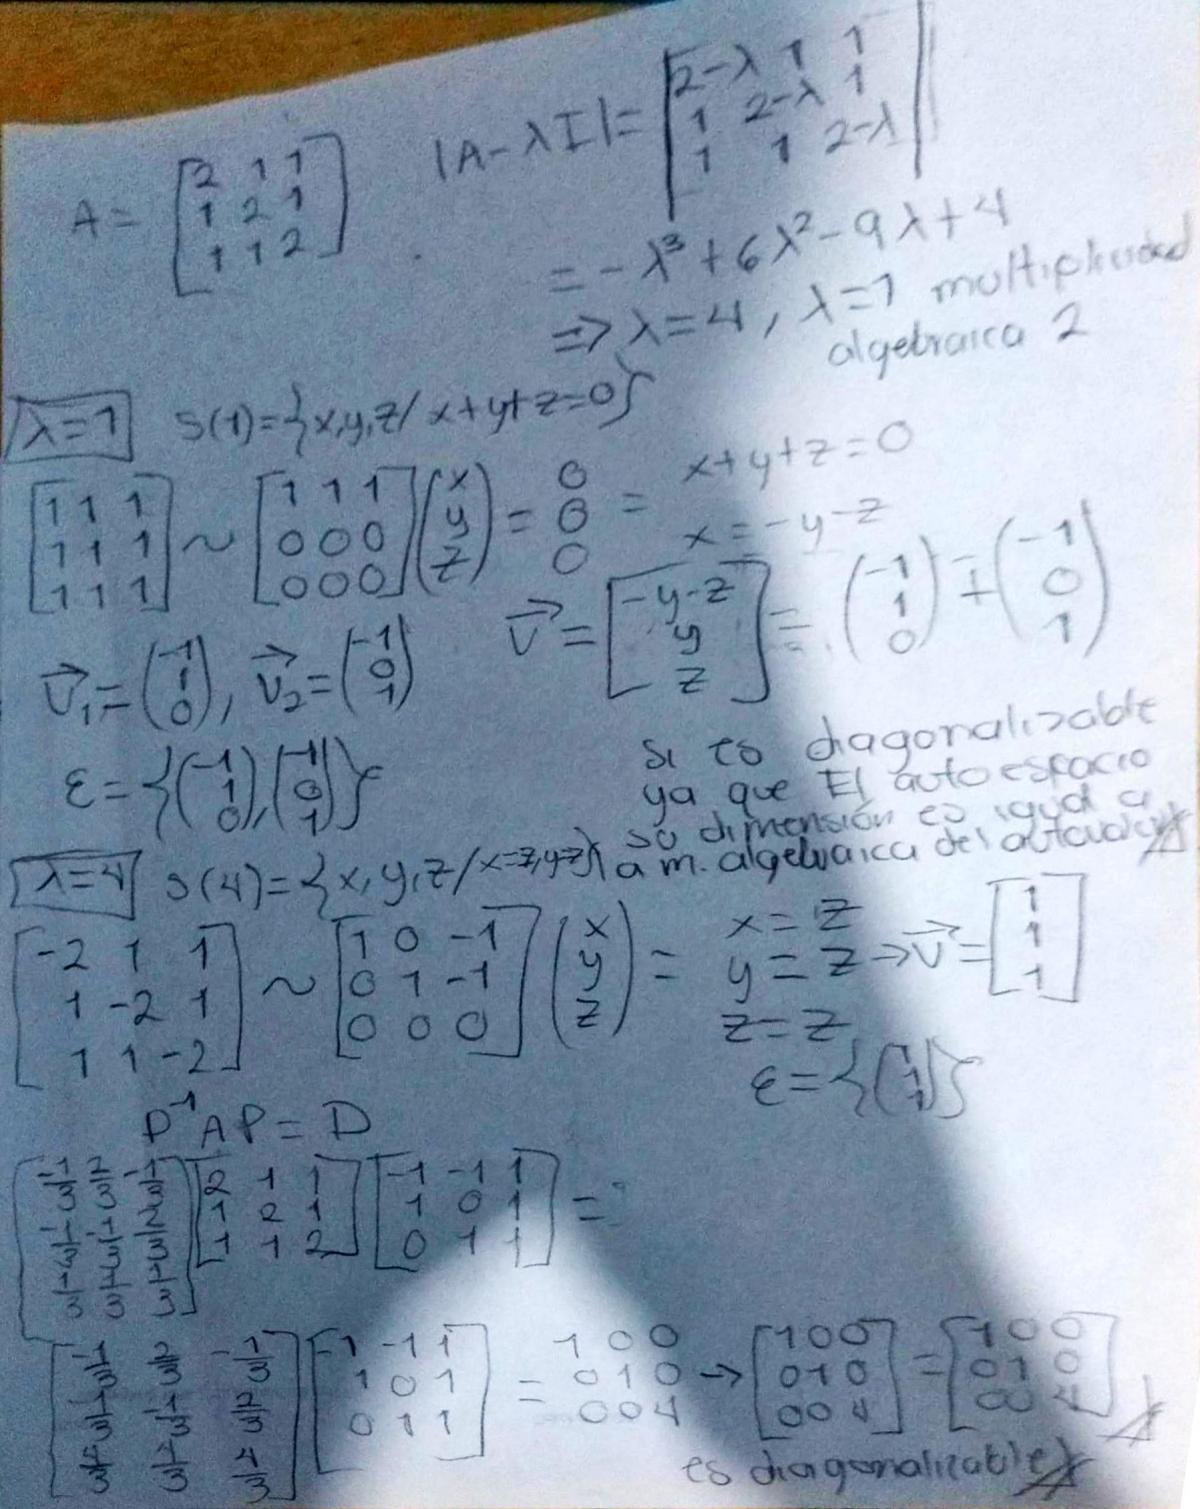 A = [2 1 1
1 2 1
1 1 2]
|A-λI| = |2-λ 1 1
1 2-λ 1
1 1 2-λ|
= -λ³+6λ²-9λ+4
=> λ=4, λ=1 multiplicidad
algebraica 2
λ=1 S(1)={x,y,z/ x+y+z=0}
[1 1 1
1 1 1
1 1 1] ~ [1 1 1
0 0 0
0 0 0] (x
y
z) = 0
0
0 = x+y+z=0
x=-y-z
v⃗ = [-y-z
y
z] = (-1
1
0) + (-1
0
1)
v⃗₁ = (-1
1
0), v⃗₂ = (-1
0
1)
ε = {(-1
1
0), (-1
0
1)}
Si es diagonalizable
ya que El autoespacio
su dimensión es igual a
a m. algebraica del autovalor
λ=4 S(4)={x,y,z/x=z,y=z}
[-2 1 1
1 -2 1
1 1 -2] ~ [1 0 -1
0 1 -1
0 0 0] (x
y
z) = x=z
y=z → v⃗ = [1
1
1]
z=z
ε = {(1
1
1)}
P⁻¹AP = D
[-1/3 2/3 -1/3
-1/3 -1/3 2/3
1/3 1/3 1/3] [2 1 1
1 2 1
1 1 2] [-1 -1 1
1 0 1
0 1 1] =
[-1/3 2/3 -1/3
-1/3 -1/3 2/3
4/3 4/3 4/3] [-1 -1 1
1 0 1
0 1 1] = 1 0 0
0 1 0
0 0 4 → [1 0 0
0 1 0
0 0 4] = [1 0 0
0 1 0
0 0 4]
es diagonalizable